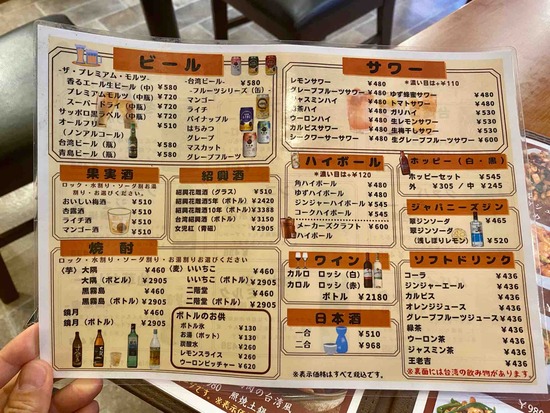 ビール
-ザ・プレミアム・モルツ-
香るエール生ビール（中）¥580
プレミアムモルツ（中瓶）¥720
スーパードライ（中瓶）¥720
サッポロ黒ラベル（中瓶）¥720
オールフリー ¥510
（ノンアルコール）
台湾ビール（瓶）¥580
青島ビール（瓶）¥580
-台湾ビール- ¥580
-フルーツシリーズ（缶）-
マンゴー
ライチ
パイナップル
はちみつ
グレープ
マスカット
グレープフルーツ
サワー
*濃い目は+¥110
レモンサワー ¥480
グレープフルーツサワー ¥480
ジャスミンハイ ¥480
ハイ ¥480
ウーロンハイ ¥480
カルピスサワー ¥480
シークワーサーサワー ¥480
ゆず蜂蜜サワー ¥480
トマトサワー ¥480
ガリハイ ¥530
生レモンサワー ¥530
生梅干しサワー ¥530
生グレープフルーツサワー ¥600
果実酒
ロック・水割り・ソーダ割お湯
割り・お選びください。
おいしい梅酒 ¥510
杏露酒 ¥510
ライチ酒 ¥510
マンゴー酒 ¥510
紹興酒
紹興花雕酒（グラス）¥510
紹興花雕酒5年（ボトル）¥2420
紹興花雕酒10年（ボトル）¥3388
台湾紹興酒（ボトル）¥3150
女児紅（青磁）¥5200
ハイボール
*濃い目は+¥120
角ハイボール ¥480
ゆずハイボール ¥480
ジンジャーハイボール ¥480
コークハイボール ¥480
メーカーズクラフト ¥600
ハイボール
ホッピー（白・黒）
ホッピーセット ¥545
外 ¥305 / 中 ¥245
ジャパニーズジン
翠ジンソーダ ¥465
翠ジンソーダ ¥520
（浅しぼりレモン）
焼酎
ロック・水割り・ソーダ割り・お湯割りお選びください
（芋）大隅 ¥460
大隅（ボトル）¥2905
黒霧島 ¥460
黒霧島（ボトル）¥2905
鏡月 ¥460
鏡月（ボトル）¥2905
（麦）いいちこ ¥460
いいちこ（ボトル）¥2905
二階堂 ¥460
二階堂（ボトル）¥2905
ボトルのお供
ボトル氷 ¥130
お湯（ポット）¥130
炭酸水 ¥260
レモンスライス ¥260
ウーロンピッチャー ¥620
ワイン
カルロ ロッシ（白）
カルロ ロッシ（赤）
ボトル ¥2180
日本酒
一合 ¥510
二合 ¥968
※表示価格はすべて税込です。
ソフトドリンク
コーラ ¥436
ジンジャーエール ¥436
カルピス ¥436
オレンジジュース ¥436
グレープフルーツジュース ¥436
緑茶 ¥436
ウーロン茶 ¥436
ジャスミン茶 ¥436
王老吉 ¥436
※裏面には台湾の飲み物があります。